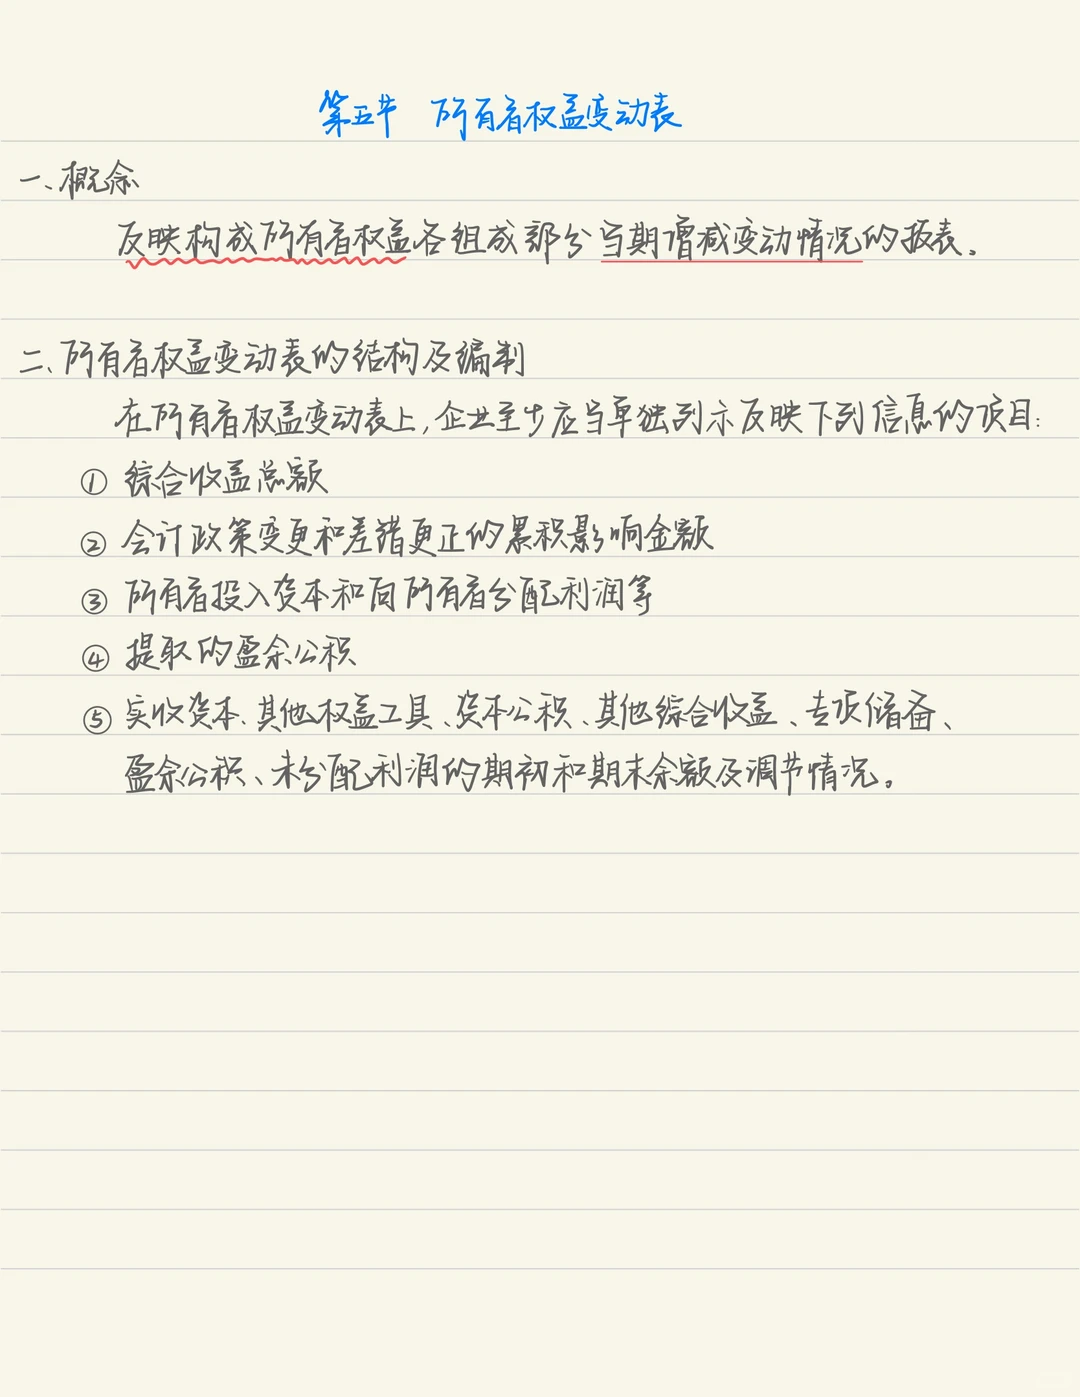 第五节 所有者权益变动表
一、概念
反映构成所有者权益各组成部分当期增减变动情况的报表。
二、所有者权益变动表的结构及编制
在所有者权益变动表上,企业至少应当单独列示反映下列信息的项目:
① 综合收益总额
② 会计政策变更和差错更正的累积影响金额
③ 所有者投入资本和向所有者分配利润等
④ 提取的盈余公积
⑤ 实收资本、其他权益工具、资本公积、其他综合收益、专项储备、
盈余公积、未分配利润的期初和期末余额及调节情况。